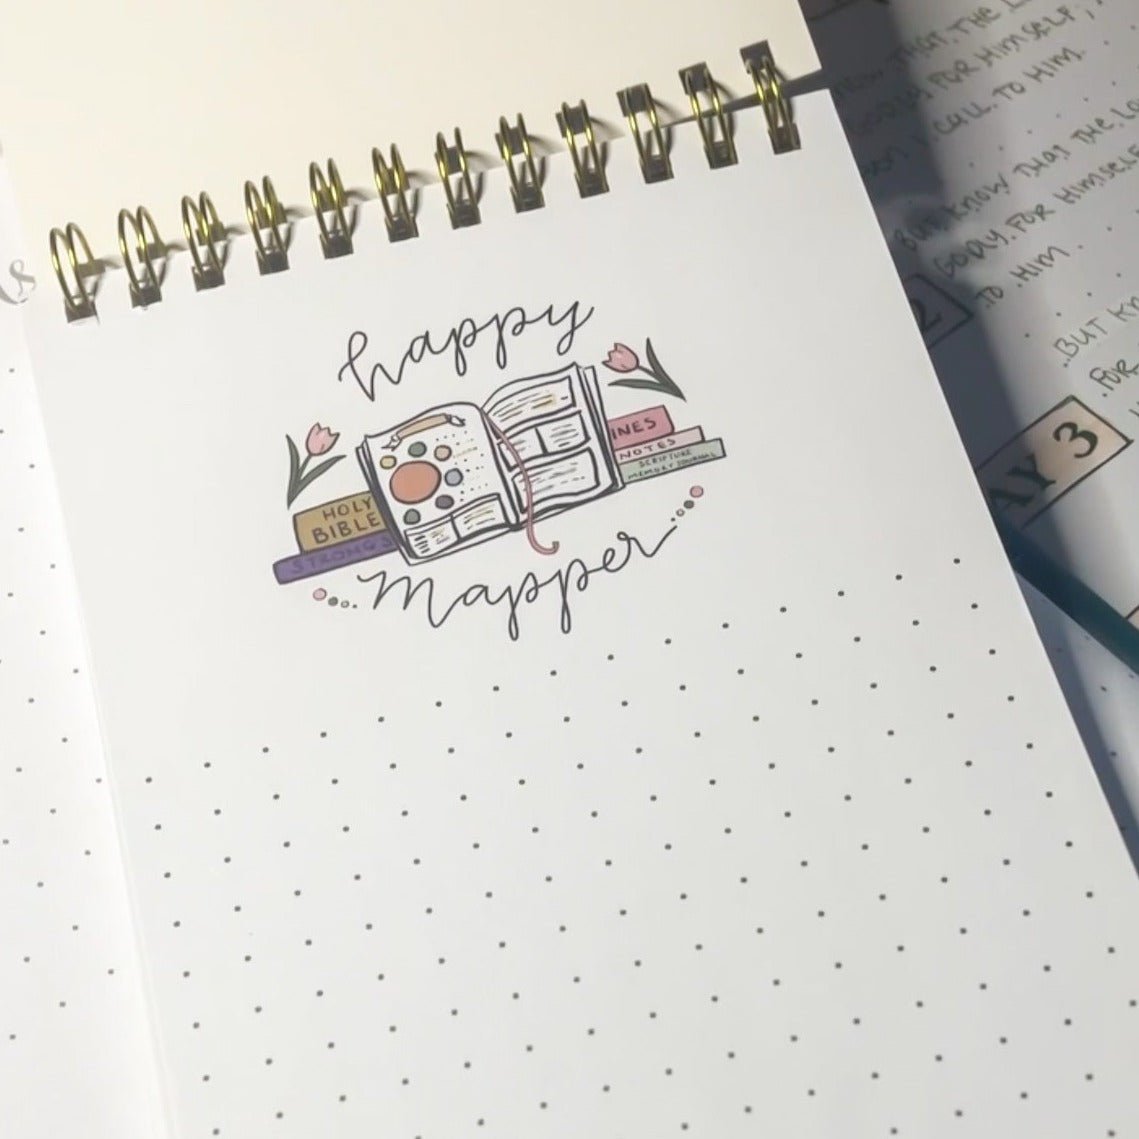 happy
HOLY
BIBLE
STRONGS
INES
NOTES
SCRIPTURE
MEMORY JOURNAL
mapper
THAT THE
GODLY FOR HIMSELF,
CALL TO HIM.
BUT KNOW THAT THE LO
GODLY FOR HIMSELF
TO HIM
BUT KN
FOR
2
AY 3